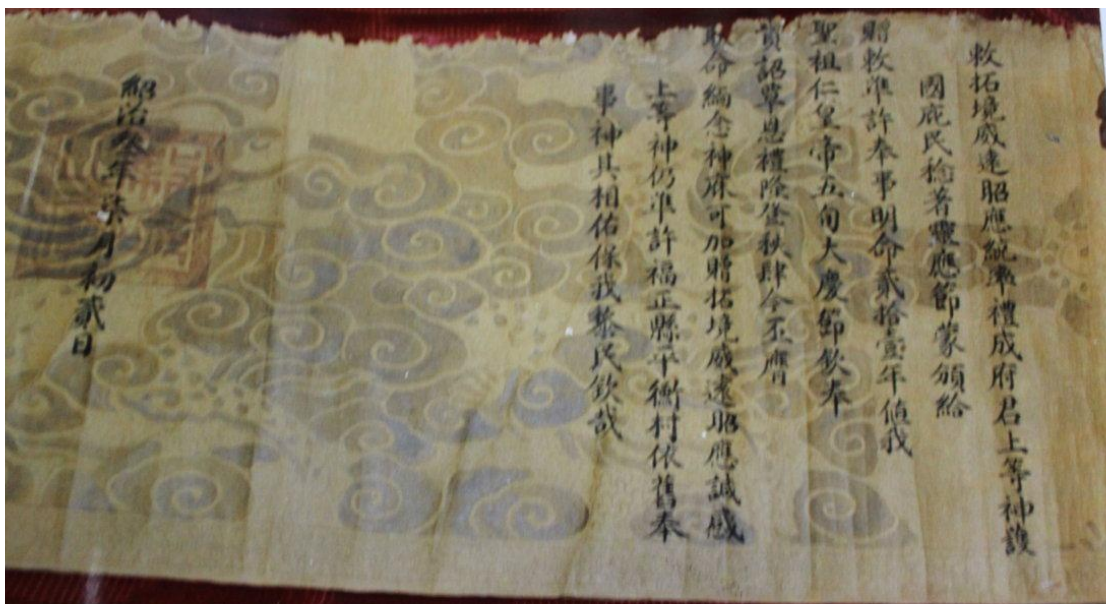 敕拓境威遠昭應統率禮成府君上等神護
國庇民稔著靈應節蒙頒給
贈敕準許奉事明命貳拾壹年值我
聖祖仁皇帝五旬大慶節欽奉
寶詔覃恩禮隆登秩肆今丕膺
耿命緬念神庥可加贈拓境威遠昭應誠感
上等神仍準許福正縣平衡村依舊奉
事神其相佑保我黎民欽哉
紹治叄年柒月初貳日